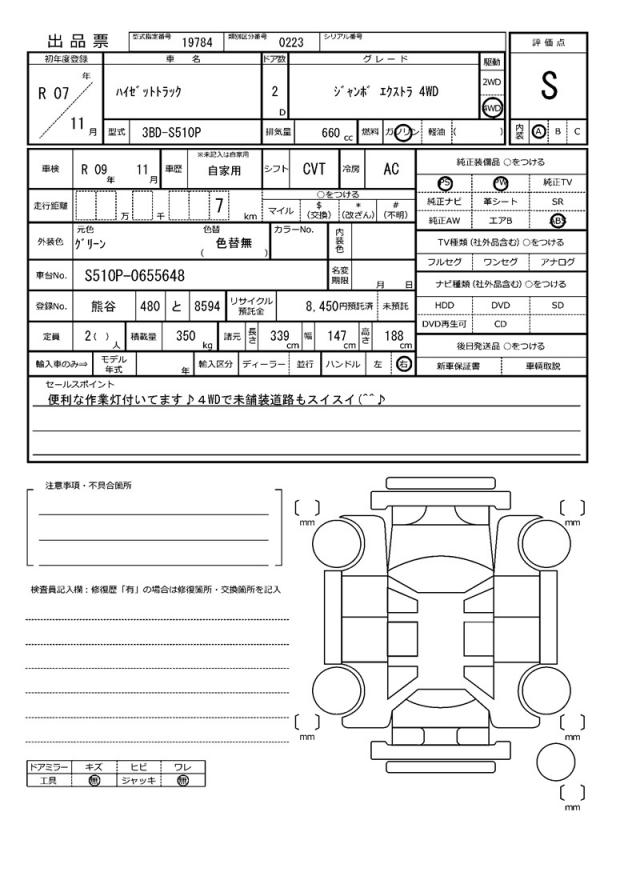 出品票 型式指定番号 19784 類別区分番号 0223 シリアル番号
評価点
S
初年度登録 車名 ドア数 グレード 駆動
R 07 年 11 月 ﾊｲｾﾞｯﾄﾄﾗｯｸ 2 D ｼﾞｬﾝﾎﾞ ｴｸｽﾄﾗ 4WD 2WD 4WD
型式 3BD-S510P 排気量 660 cc 燃料 ガソリン 軽油 ( ) 内装 A B C
車検 R 09 年 11 月 車歴 ※未記入は自家用 自家用 シフト CVT 冷房 AC
純正装備品 ○をつける
PS PW 純正TV
純正ナビ 革シート SR
純正AW エアB ABS
走行距離 万 千 7 km
○をつける
マイル $(交換) *(改ざん) #(不明)
外装色 元色 ｸﾞﾘｰﾝ 色替 ( 色替無 ) カラーNo. 内装色
TV種類 (社外品含む) ○をつける
フルセグ ワンセグ アナログ
車台No. S510P-0655648 名変期限 月 日
ナビ種類 (社外品含む) ○をつける
HDD DVD SD
DVD再生可 CD
登録No. 熊谷 480 と 8594 リサイクル預託金 8,450円預託済 未預託
定員 2( ) 人 積載量 350 kg 諸元 長さ 339 cm 幅 147 cm 高さ 188 cm
後日発送品 ○をつける
新車保証書 車輌取説
輸入車のみ⇒ モデル年式 年 輸入区分 ディーラー 並行 ハンドル 左 右
セールスポイント
便利な作業灯付いてます♪４WDで未舗装道路もスイスイ(^^♪
注意事項・不具合箇所
mm
mm
検査員記入欄：修復歴「有」の場合は修復箇所・交換箇所を記入
mm
mm
ドアミラー キズ ヒビ ワレ
工具 無 ジャッキ 無
mm